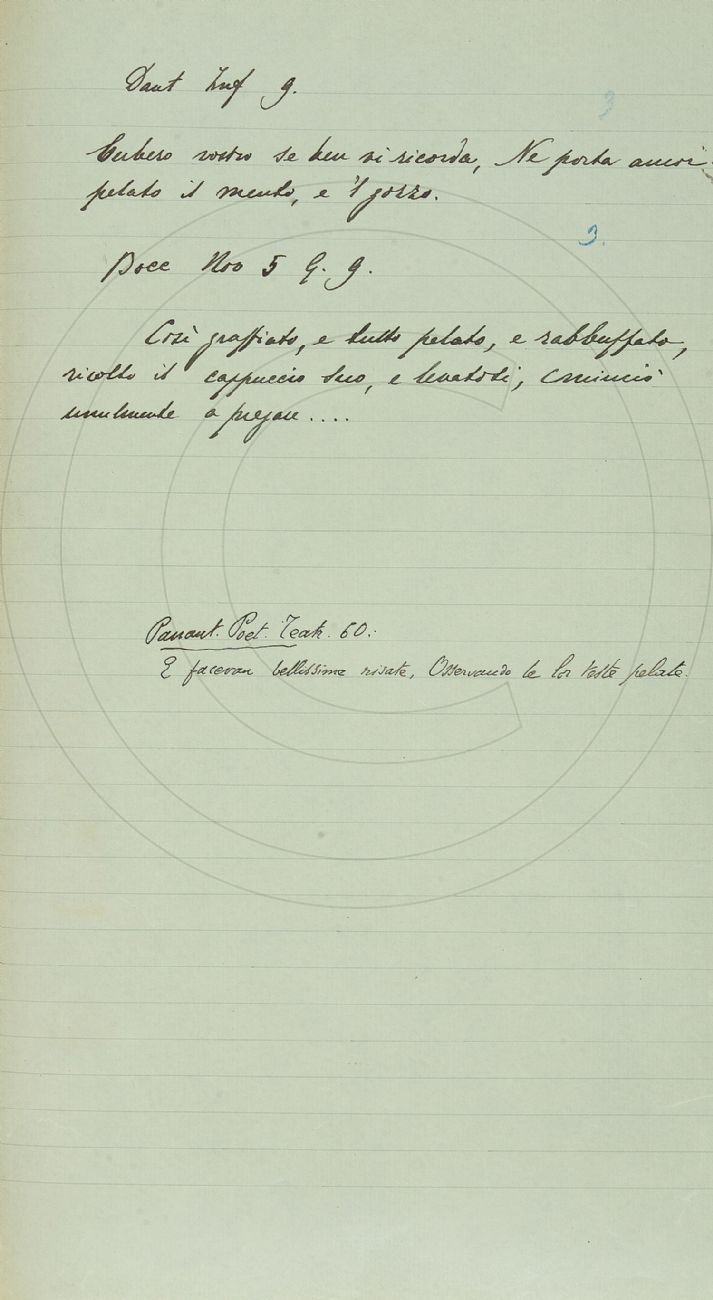 Dant Inf 9.
3
Cerbero vostro se ben vi ricorda, Ne porta ancor
pelato il mento, e 'l gozzo.
3.
Bocc Nov 5 G. 9.
Così graffiato, e tutto pelato, e rabbuffato,
ricolto il cappuccio suo, e levatosi, cominciò
umilmente a pregare ....
Panant. Poet. Teatr. 60.
E facevan bellissime risate, Osservando le lor teste pelate.